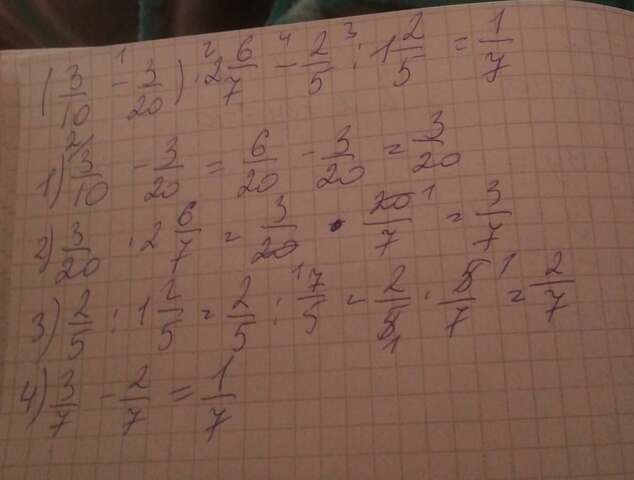 (3/10 - 3/20) · 2 6/7 - 2/5 : 1 2/5 = 1/7
1) 3/10 - 3/20 = 6/20 - 3/20 = 3/20
2) 3/20 · 2 6/7 = 3/20 · 20/7 = 3/7
3) 2/5 : 1 2/5 = 2/5 : 7/5 = 2/5 · 5/7 = 2/7
4) 3/7 - 2/7 = 1/7